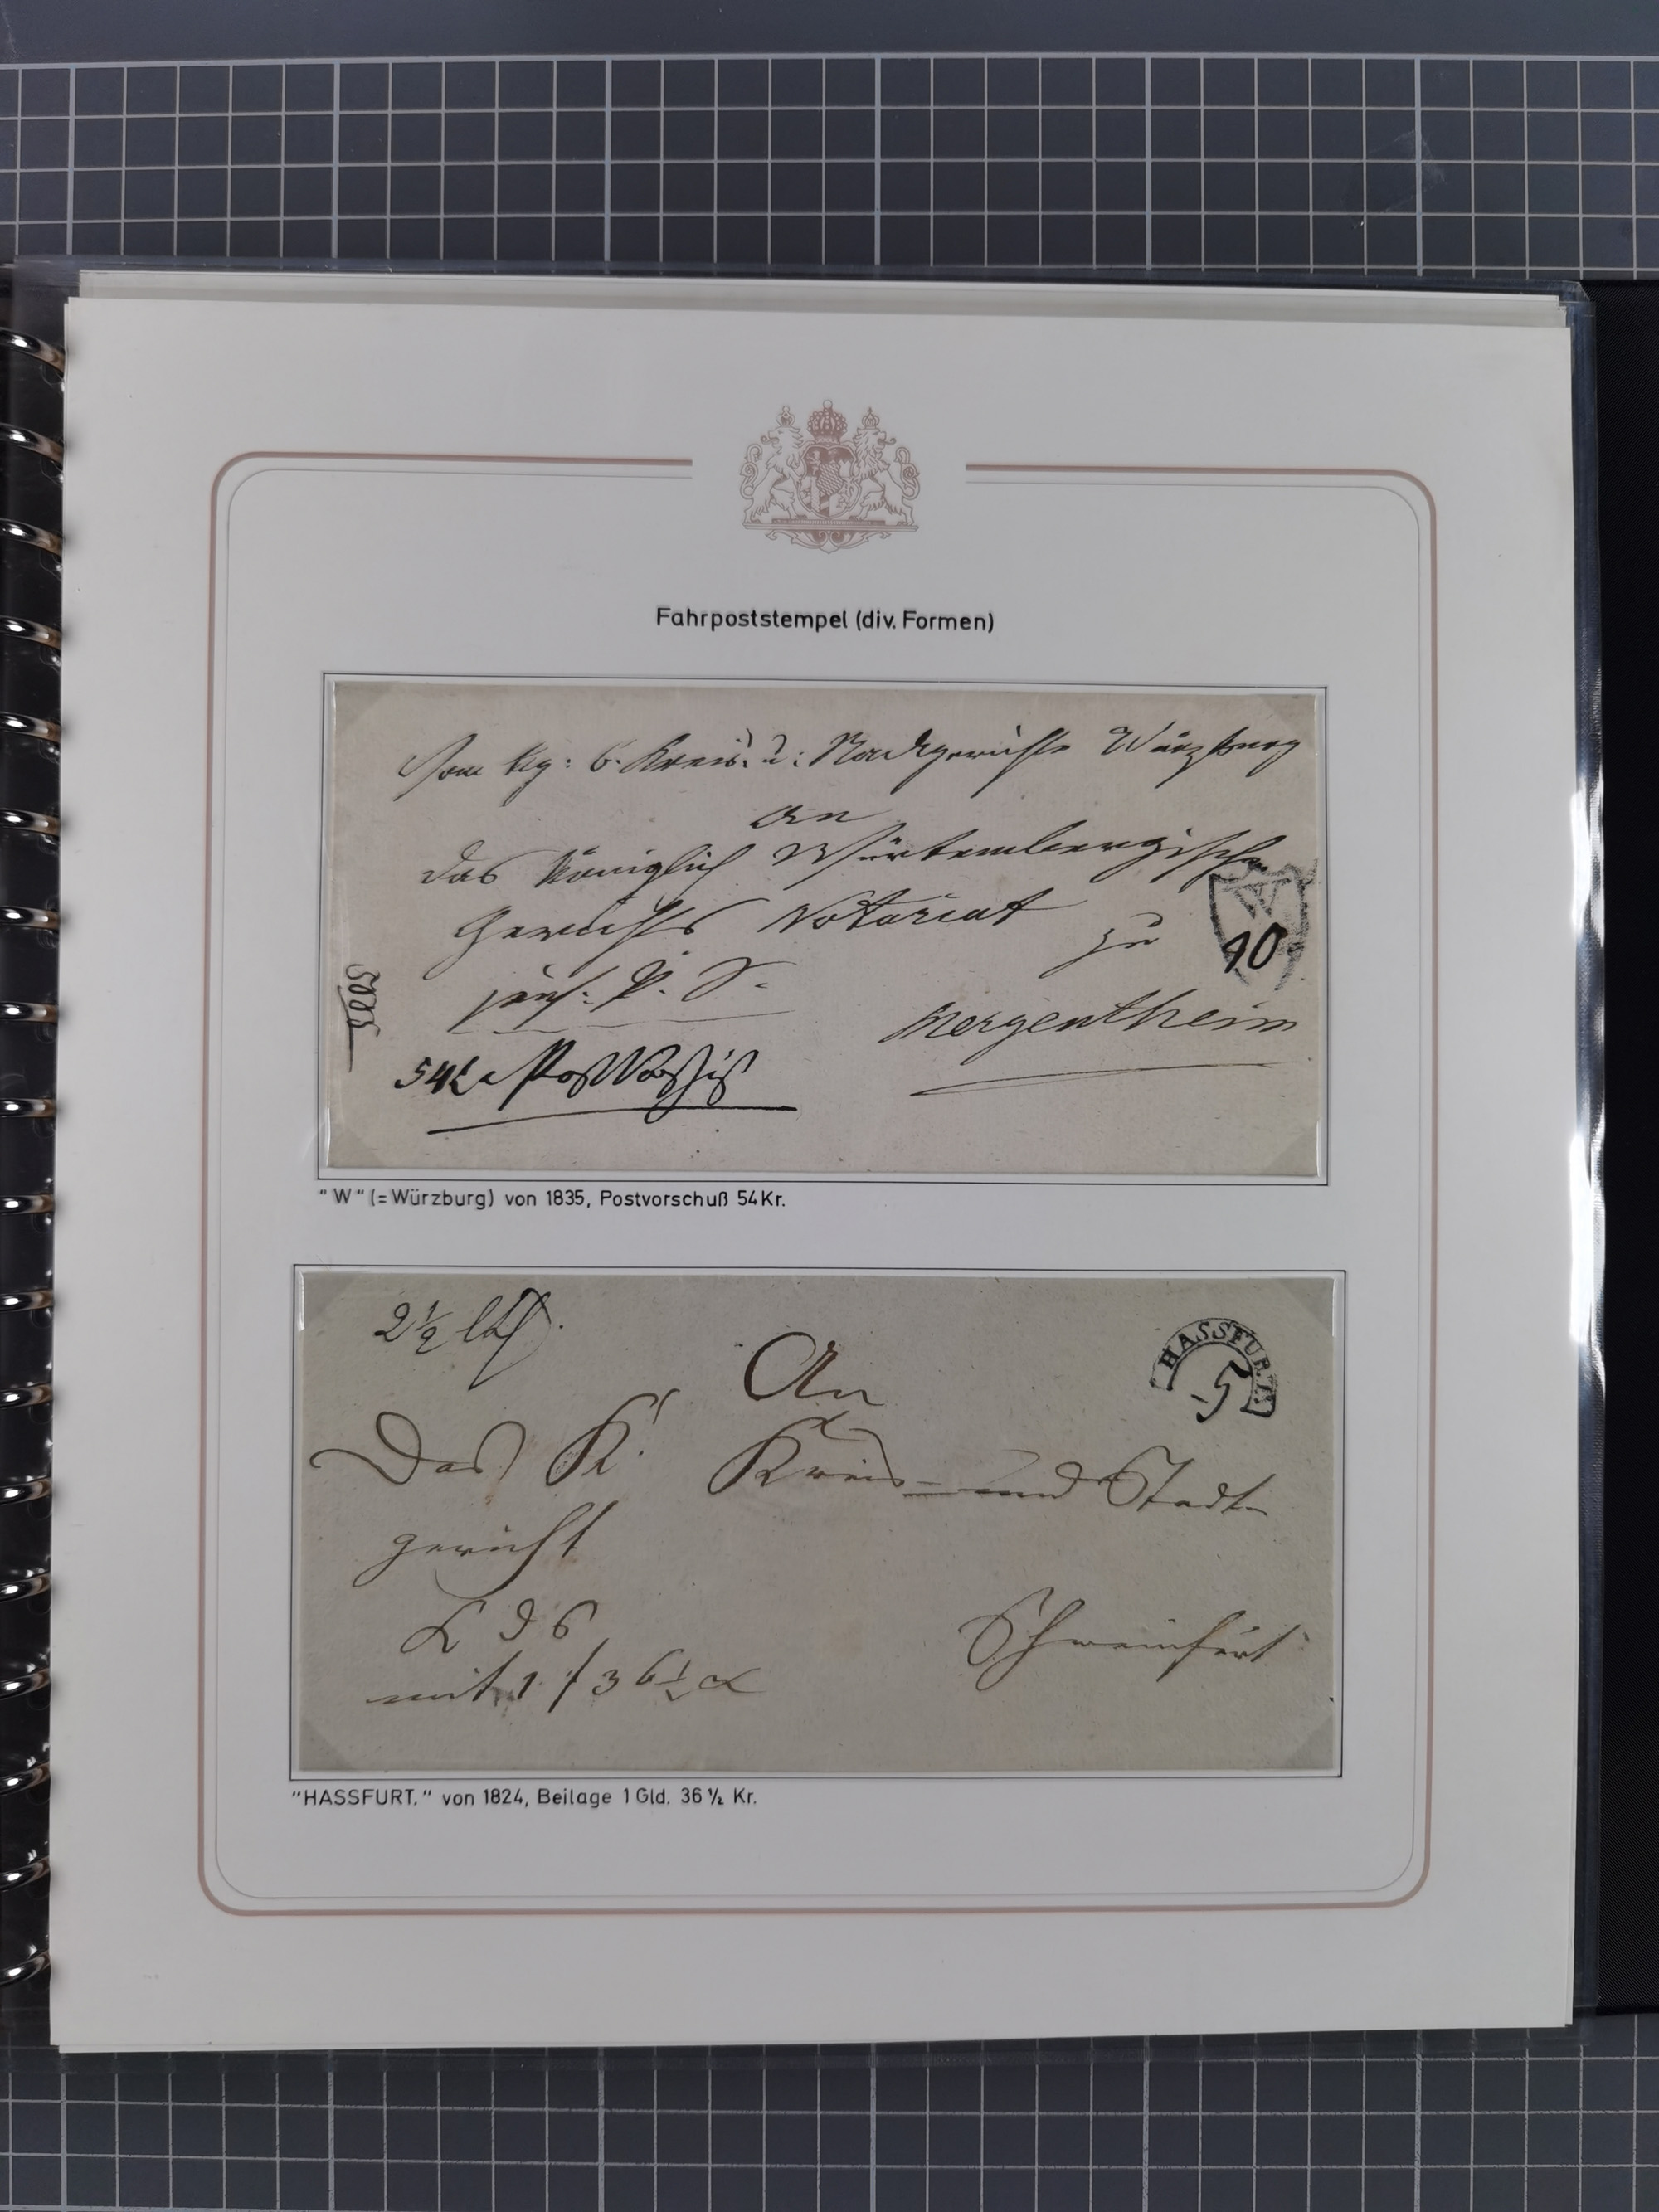 Fahrpoststempel (div. Formen)
Vom kg: b. Kreis u: Stadtgerichte Würzburg
An
das Königlich Würtembergische
Gerichts Notariat
zu
W
10
Mergentheim
54 Postvorschuß
"W" (= Würzburg) von 1835, Postvorschuß 54 Kr.
2½ lth
HASSFURT.
5
An
Das K. Kreis- und Stadt-
gericht
Schweinfurt
mit 1 f 36½ x
"HASSFURT." von 1824, Beilage 1 Gld. 36 ½ Kr.